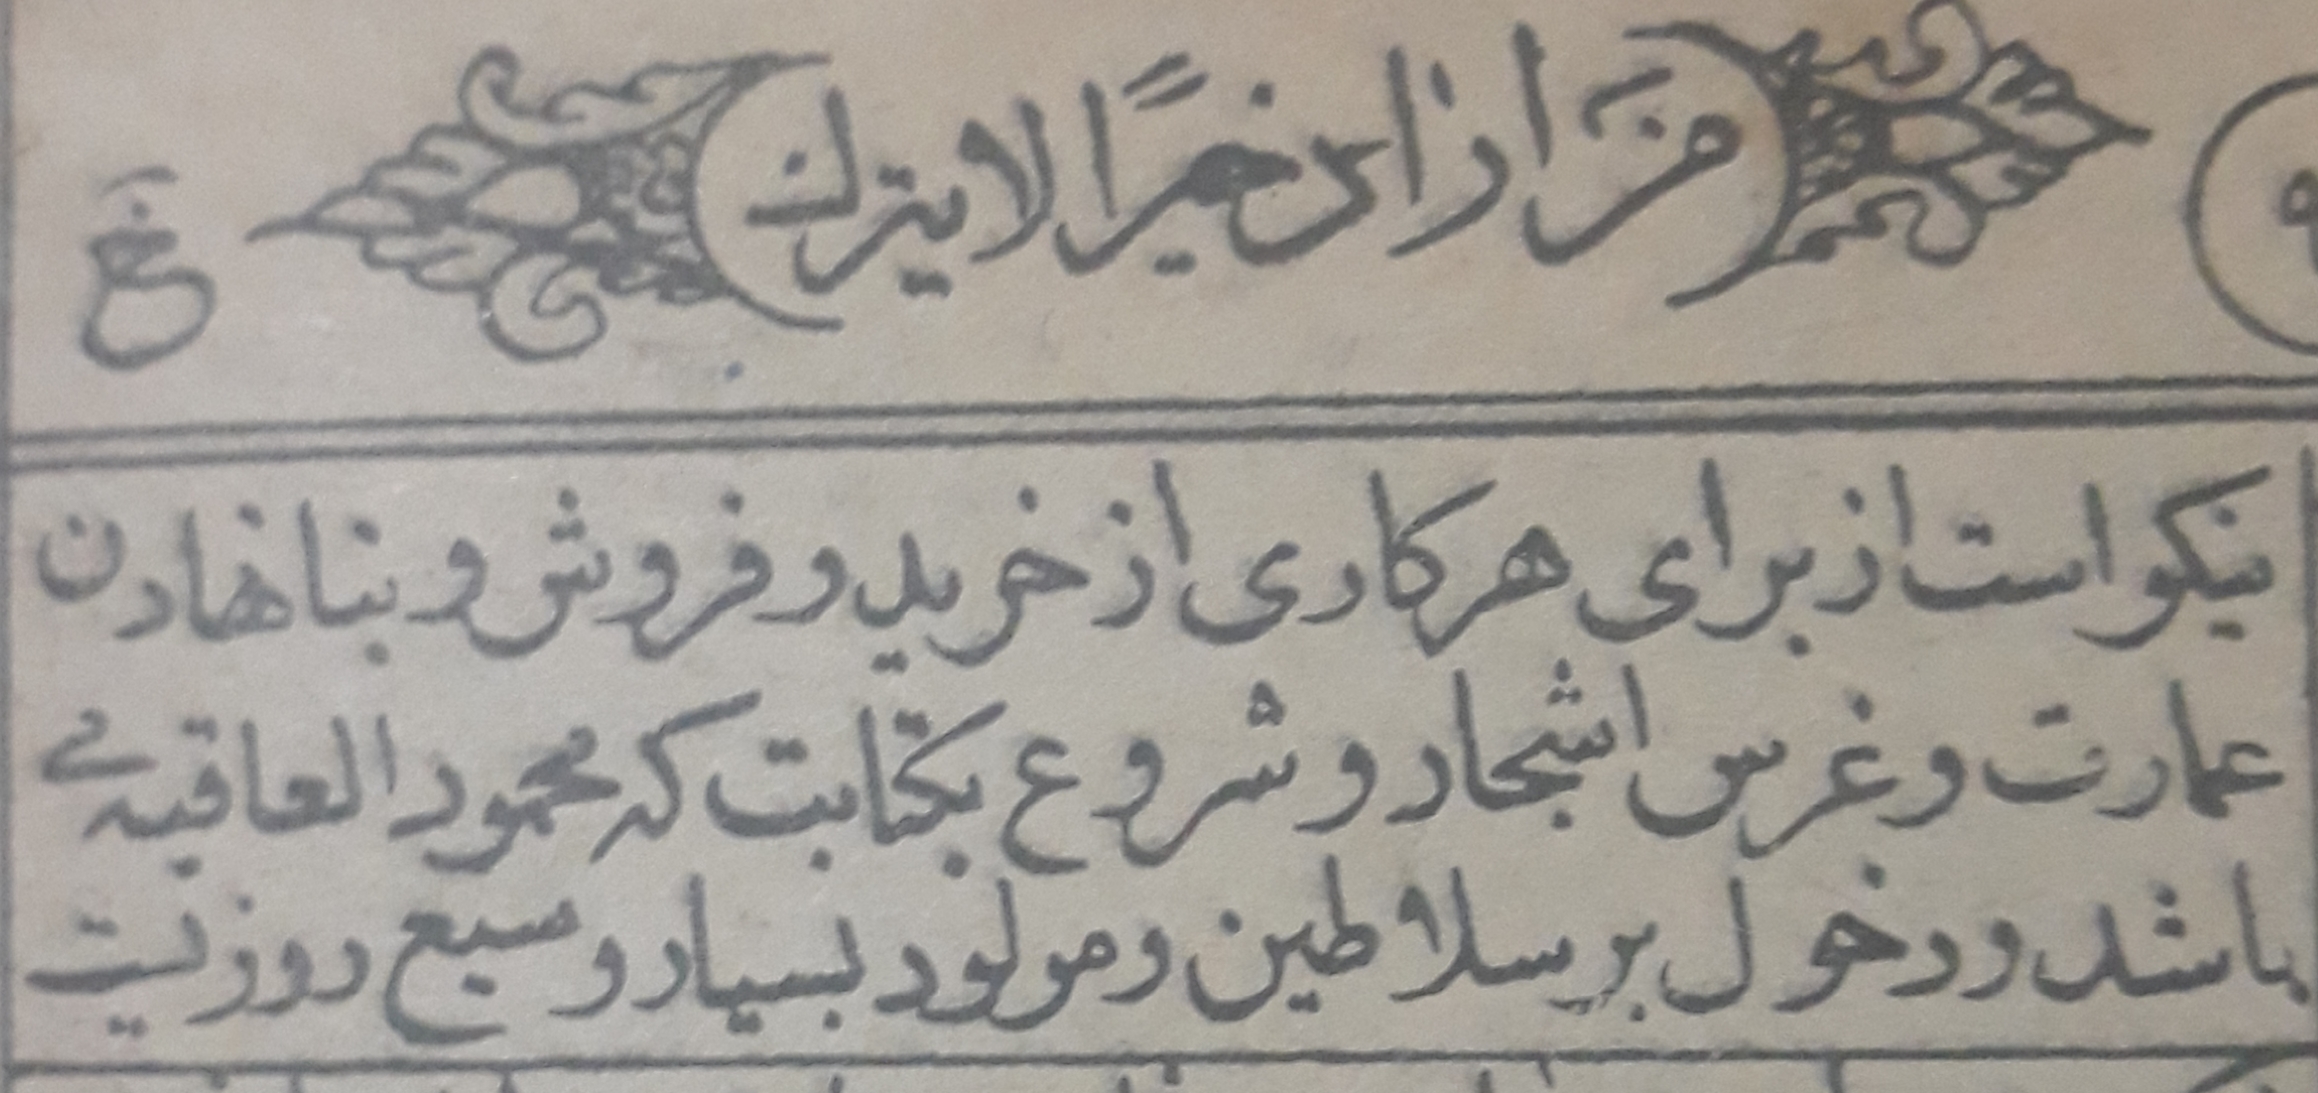 خیرًا لا یترك
نیکو است از برای هر کاری از خرید و فروش و بنا نهادن
عمارت و غرس اشجار و شروع بکتابت که محمود العاقبه
باشد و دخول بر سلاطین و مولود بسیار وسیع روزیت